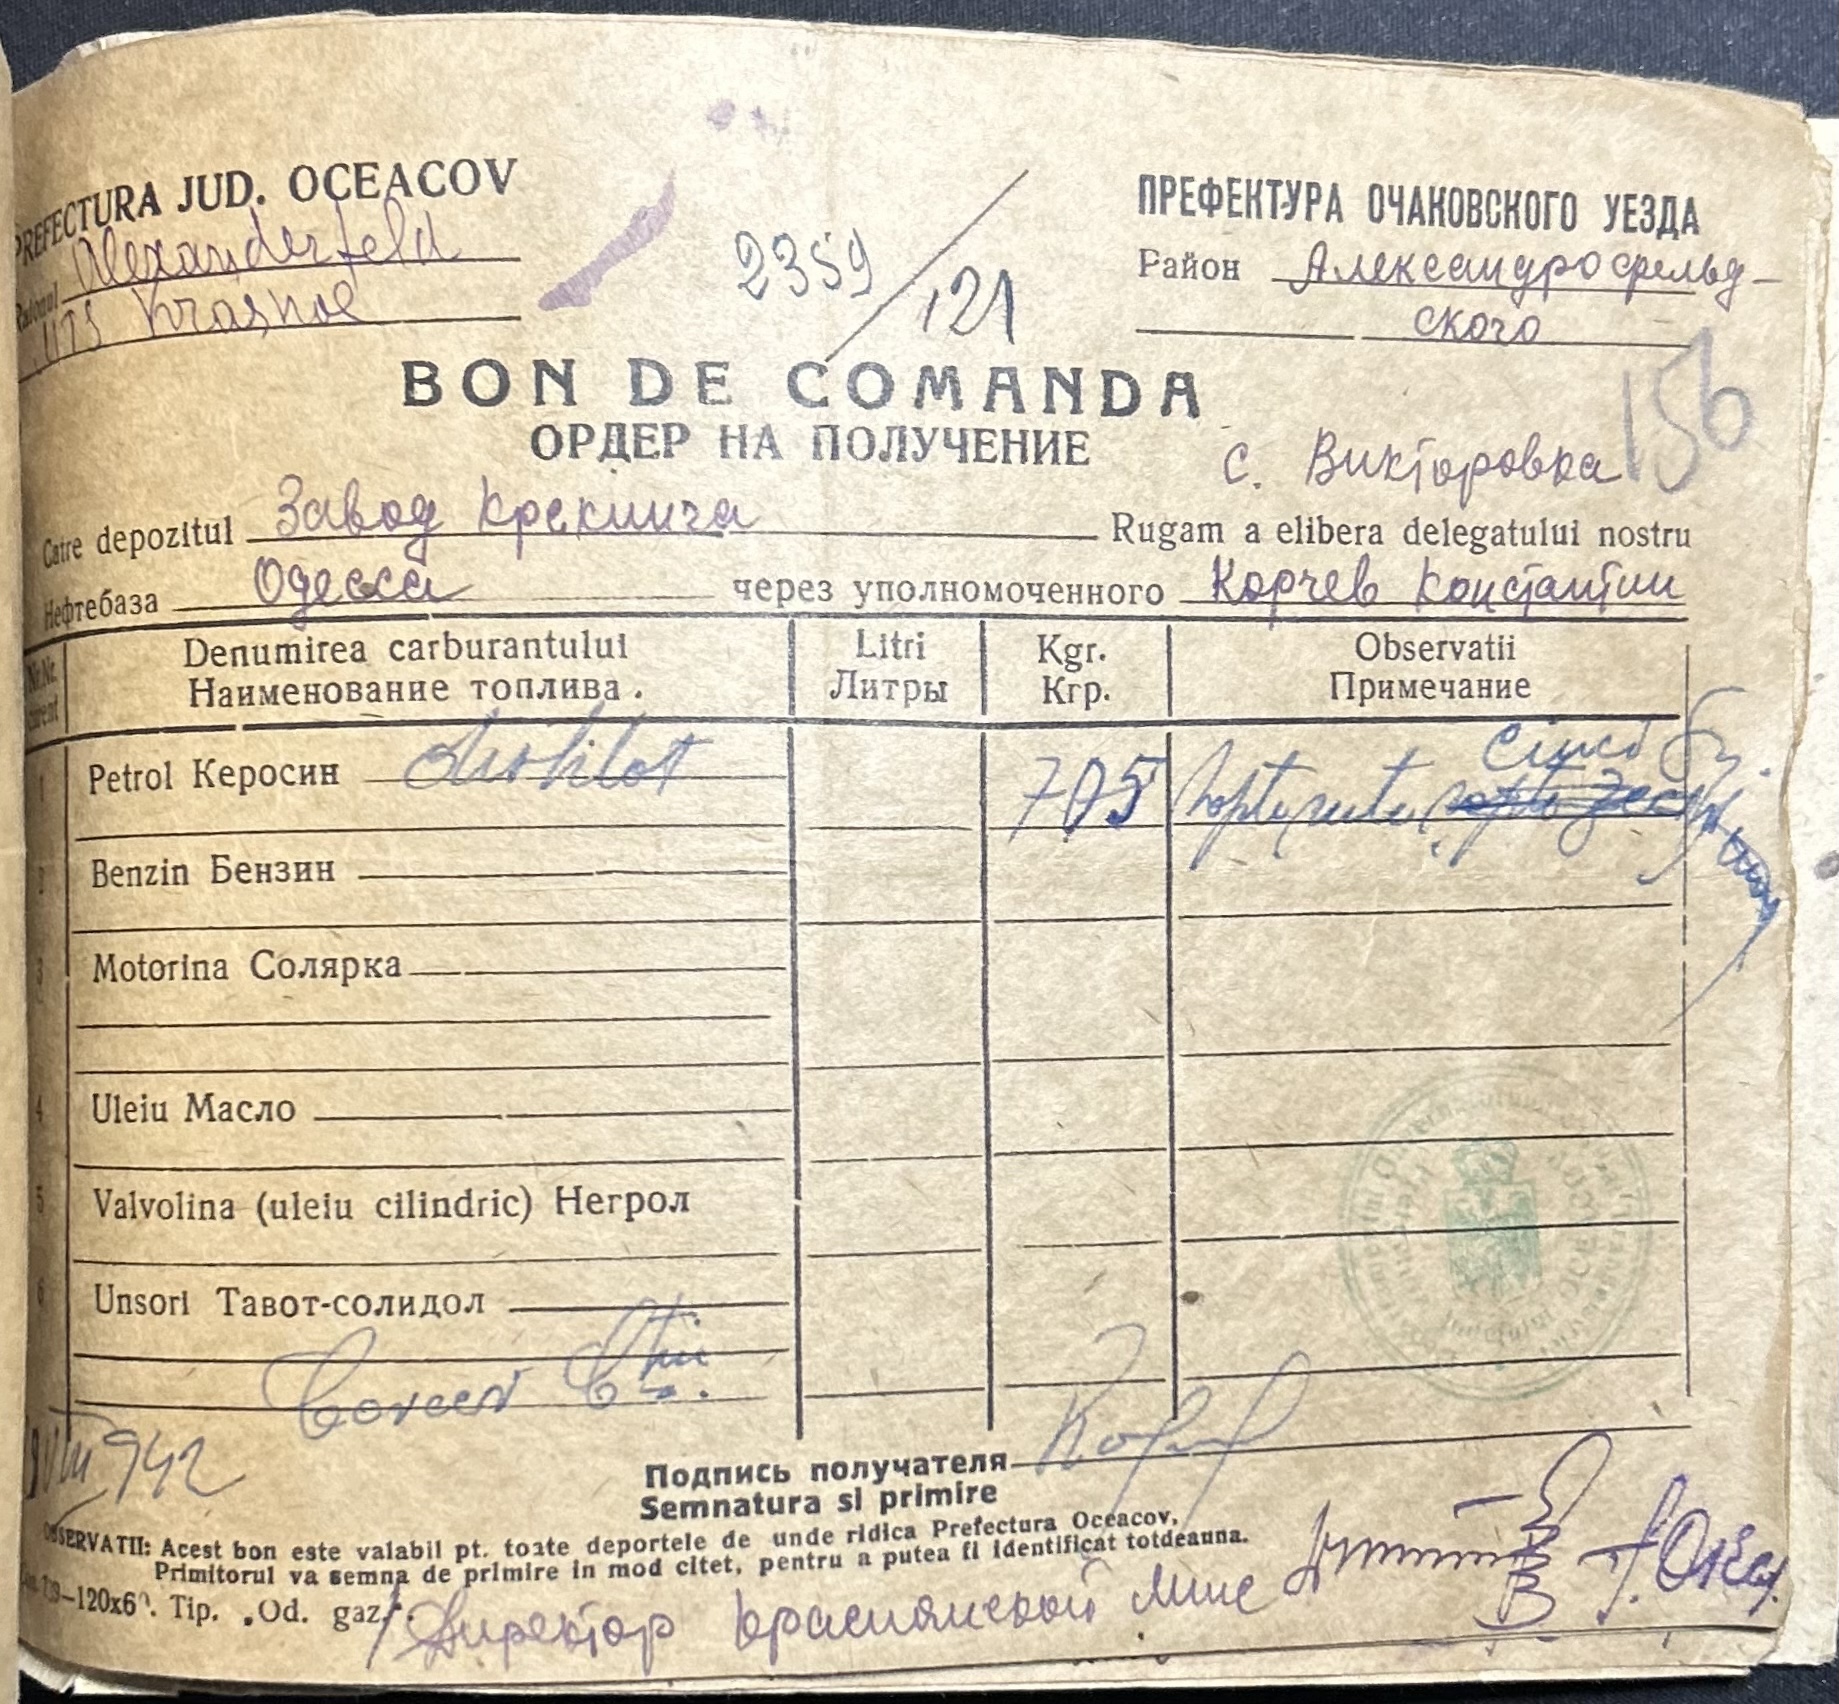 PREFECTURA JUD. OCEACOV
Raionul Alexanderfeld
MTS Krasnoe
2359/121
ПРЕФЕКТУРА ОЧАКОВСКОГО УЕЗДА
Район Александрофельд-
ского
BON DE COMANDA
ОРДЕР НА ПОЛУЧЕНИЕ
156
с. Викторовка
Catre depozitul Завод Крекинга Rugam a elibera delegatului nostru
Нефтебаза Одесса через уполномоченного Корчев Константин
Nr.Nr. curent
Denumirea carburantului Litri Kgr. Observatii
Наименование топлива. Литры Кгр. Примечание
cinci
1 Petrol Керосин distilat 705 șaptesute
2 Benzin Бензин
3 Motorina Солярка
4 Uleiu Масло
5 Valvolina (uleiu cilindric) Негрол
6 Unsori Тавот-солидол
942
Подпись получателя
Semnatura si primire
OBSERVATII: Acest bon este valabil pt. toate deportele de unde ridica Prefectura Oceacov,
Primitorul va semna de primire in mod citet, pentru a putea fi identificat totdeauna.
-120x60. Tip. „Od. gaz."
Директор Краснянской Мтс